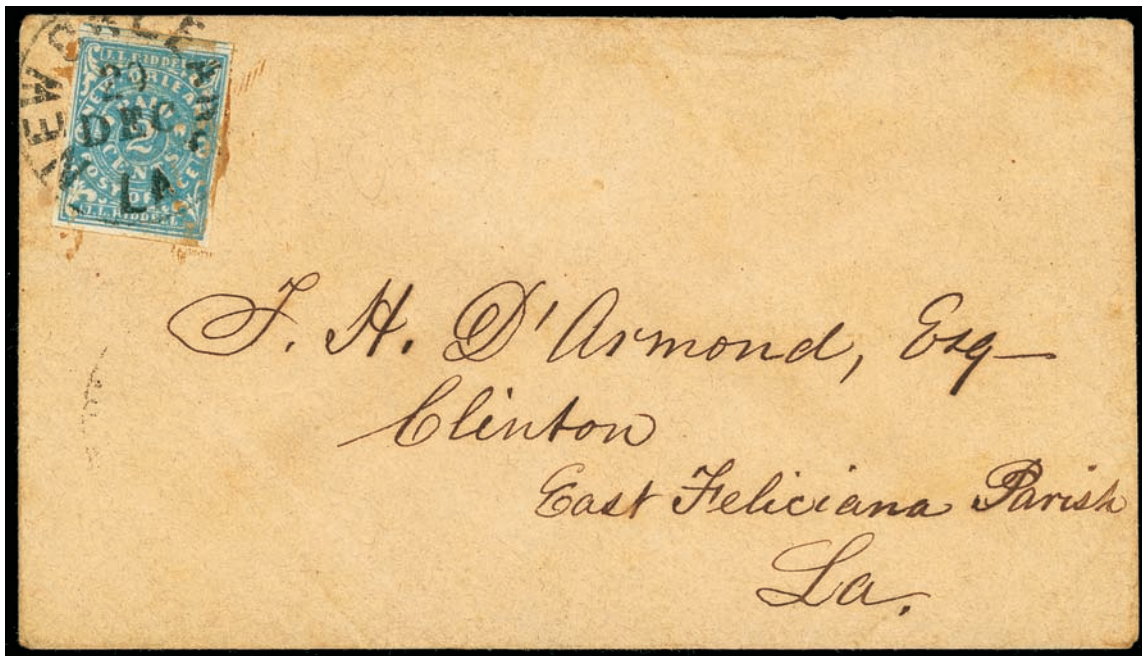 NEW ORLEANS
29
DEC
LA
J.L. RIDDELL
NEW ORLEANS
P.M.
2
CENTS
POST OFFICE
J.L. RIDDELL
J. H. D'Armond, Esq
Clinton
East Feliciana Parish
La.